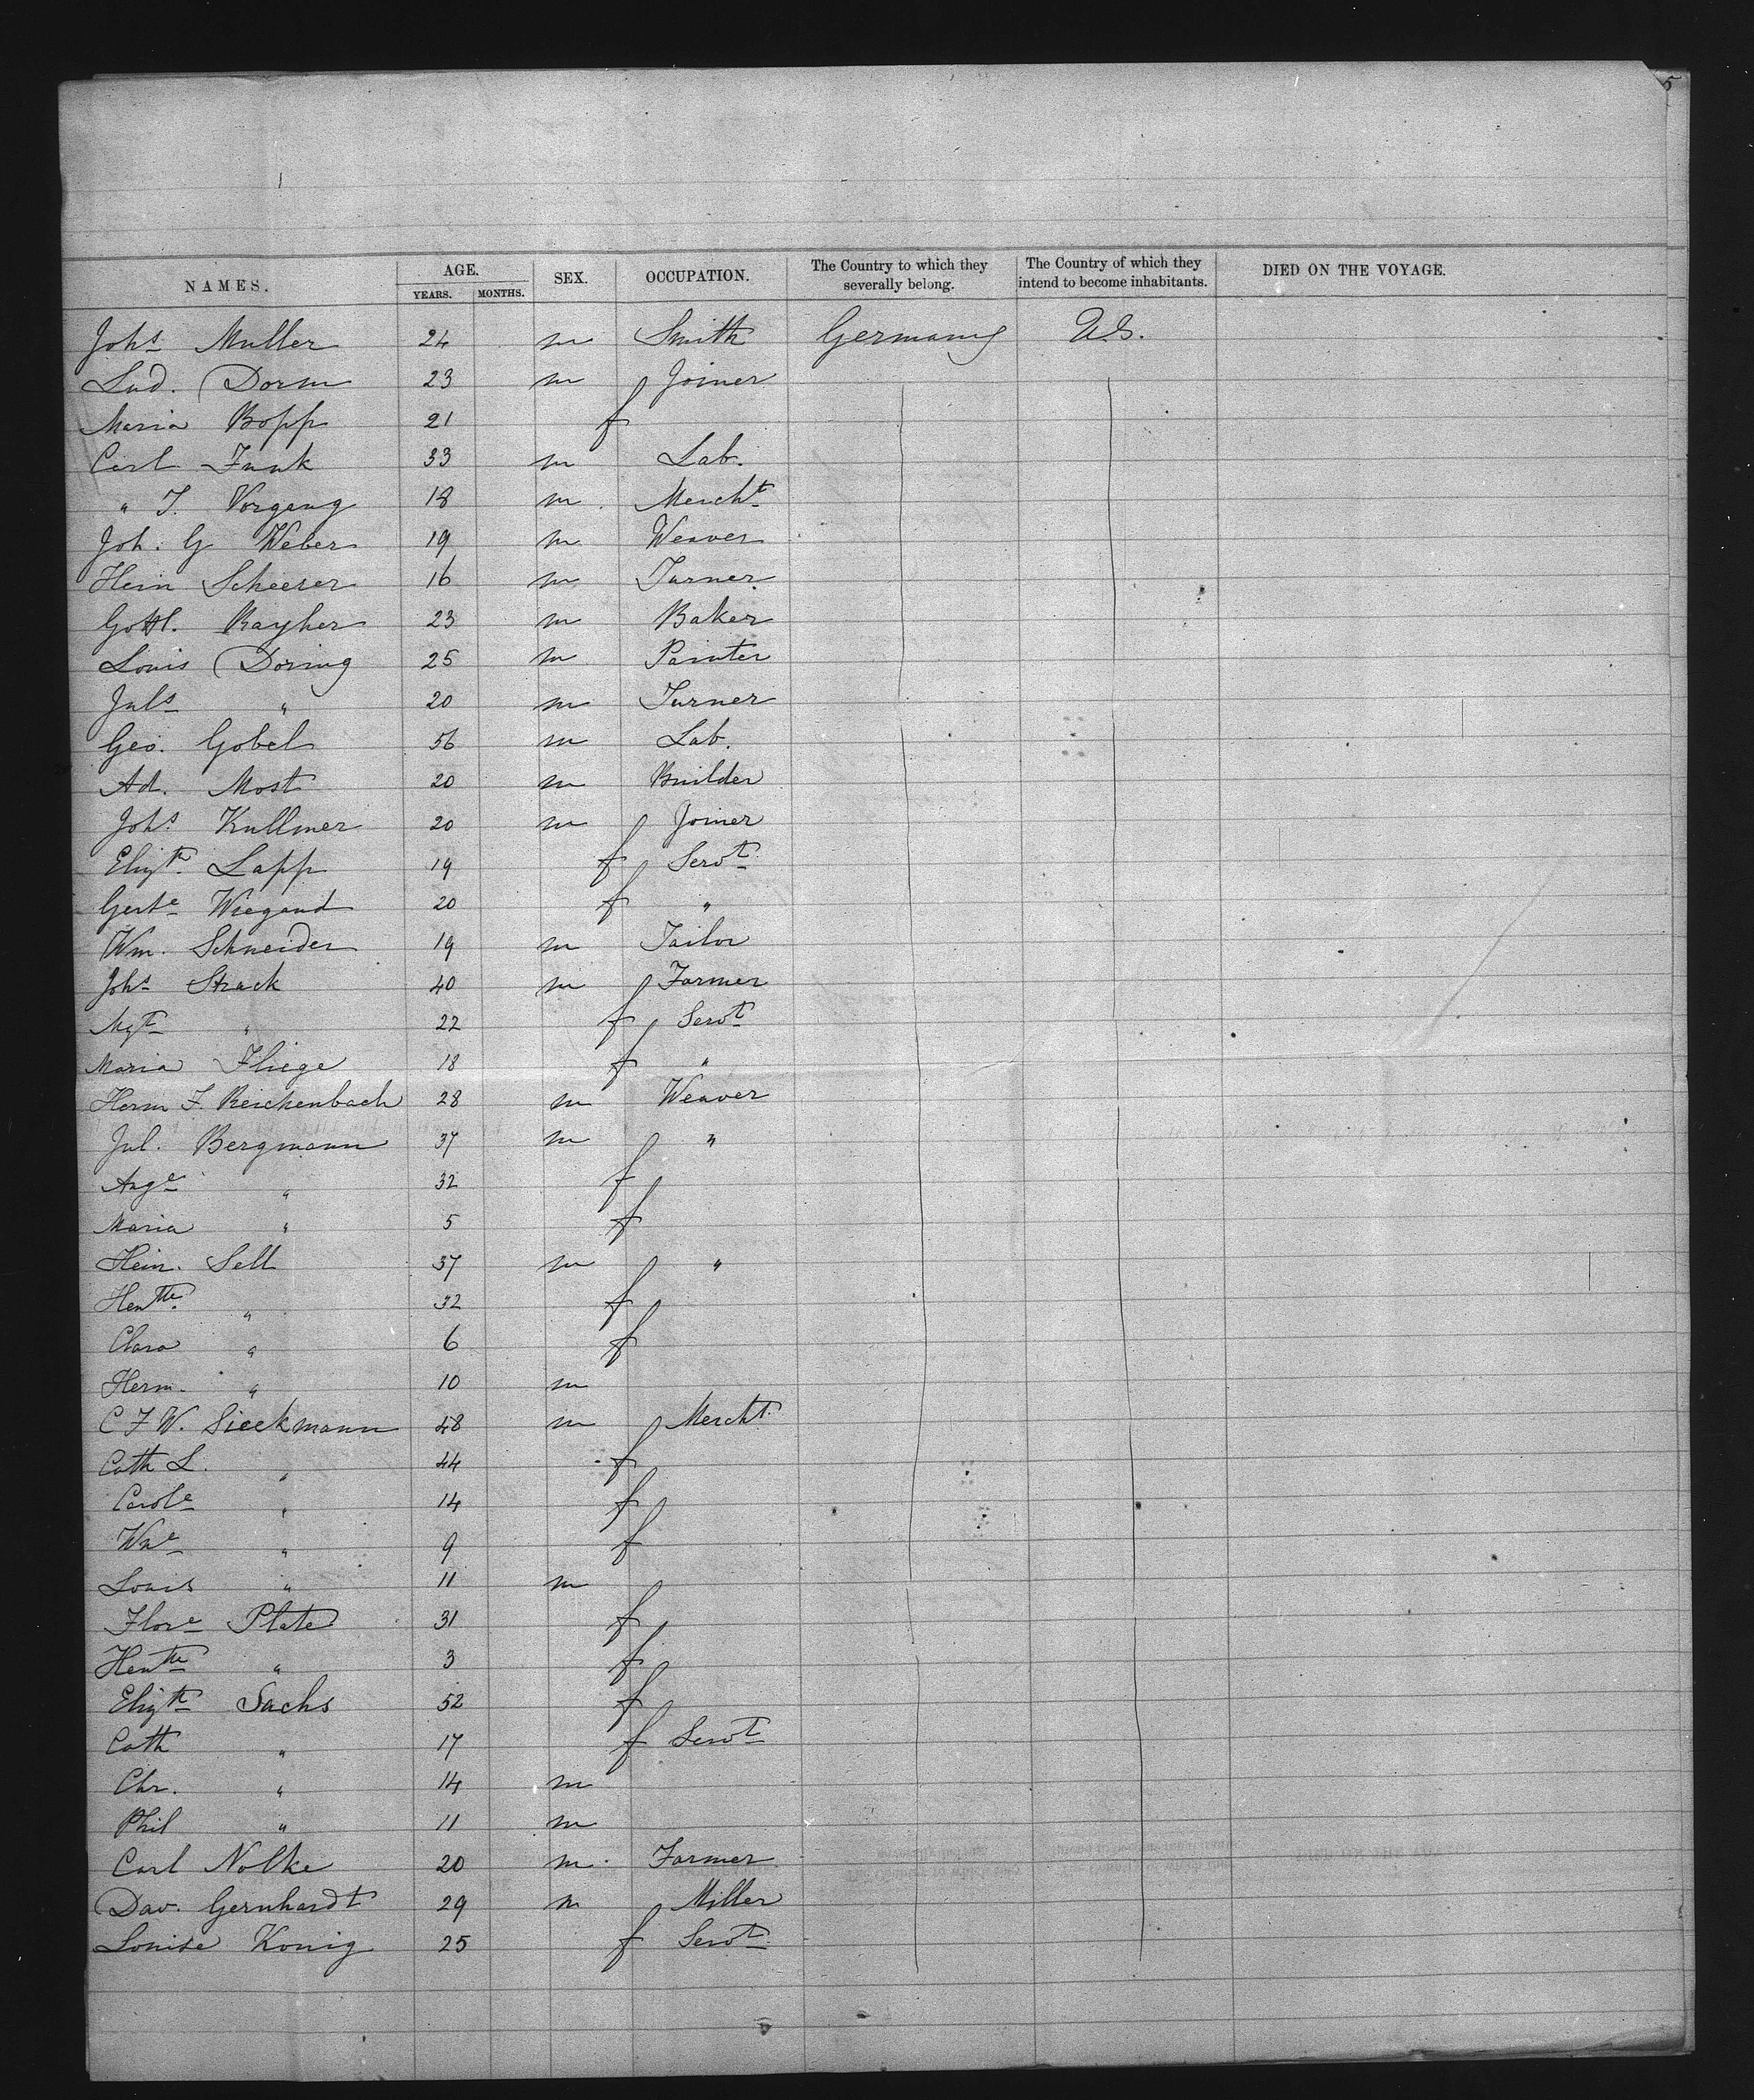 5
NAMES. AGE. YEARS. MONTHS. SEX. OCCUPATION. The Country to which they severally belong. The Country of which they intend to become inhabitants. DIED ON THE VOYAGE.
Johs Muller 24 m Smith Germany U.S.
Lud. Dorm 23 m Joiner
Maria Bopp 21 f
Carl Funk 33 m Lab.
" F. Vorgang 18 m Mercht
Joh. G Weber 19 m Weaver
Hein Scheerer 16 m Turner
Gottl. Rayher 23 m Baker
Louis Doring 25 m Painter
Juls " 20 m Turner
Geo. Gobel 56 m Lab.
Ad. Most 20 m Builder
Johs Kullmer 20 m Joiner
Elizth Lapp 19 f Servt
Gerte Wiegand 20 f "
Wm. Schneider 19 m Tailor
Johs Strack 40 m Farmer
Mgth " 22 f Servt
Maria Fliege 18 f "
Herm F. Reichenbach 28 m Weaver
Jul. Bergmann 37 m "
Auge " 32 f
Maria " 5 f
Hein. Sell 37 m "
Hentte " 32 f
Clara " 6 f
Herm. " 10 m
C F W. Sieckmann 48 m Mercht
Cath L. " 44 f
Carole " 14 f
Wne " 9 f
Louis " 11 m
Flore Plate 31 f
Hentte " 3 f
Elizth Sachs 52 f
Cath " 17 f Servt
Chr. " 14 m
Phil " 11 m
Carl Nolke 20 m Farmer
Dav. Gernhardt 29 m Miller
Louise Konig 25 f Servt